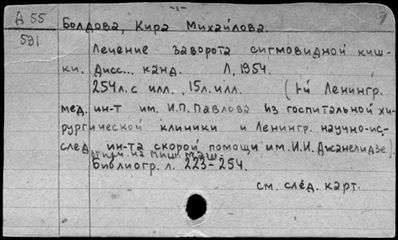 Д 55
591
-1-
Болдова, Кира Михайлова.
Лечение заворота сигмовидной киш-
ки. Дисс... канд. Л, 1954.
254 л. с илл., 15 л. илл. (1-й Ленингр.
мед. ин-т им. И.П. Павлова Из госпитальной хи-
рургической клиники и Ленингр. научно-ис-
след. ин-та скорой помощи им. И.И. Джанелидзе)
на пиш. маш.
Библиогр. л. 223-254.
см. след. карт.